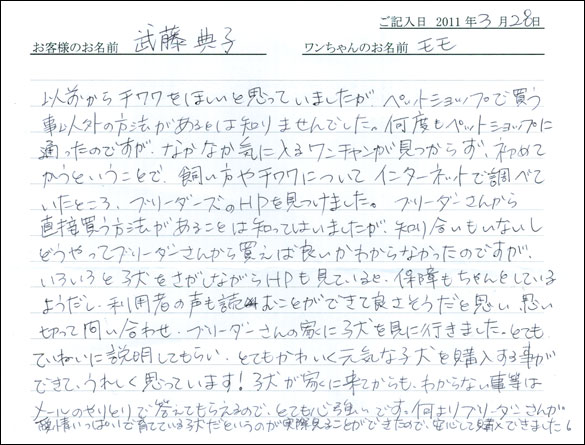 ご記入日 2011年3月28日
お客様のお名前 武藤 典子 ワンちゃんのお名前 モモ
以前からチワワをほしいと思っていましたが、ペットショップで買う
事以外の方法があるとは知りませんでした。何度もペットショップに
通ったのですが、なかなか気に入るワンチャンが見つからず、初めて
かうということで、飼い方やチワワについてインターネットで調べて
いたところ、ブリーダーズのHPを見つけました。ブリーダーさんから
直接買う方法があることは知ってはいましたが、知り合いもいないし
どうやってブリーダーさんから買えば良いかわからなかったのですが、
いろいろと子犬をさがしながらHPも見ていると、保障もちゃんとしている
ようだし、利用者の声も読むことができて良さそうだと思い、思い
切って問い合わせ、ブリーダーさんの家に子犬を見に行きました。とても
ていねいに説明してもらい、とてもかわいく元気な子犬を購入する事が
できて、うれしく思っています!子犬が家に来てからも、わからない事等は
メールのやりとりで答えてもらえるので、とても心強いです。何よりブリーダーさんが
愛情いっぱいで育てている子犬だというのが実際見ることができたので、安心して購入できました。